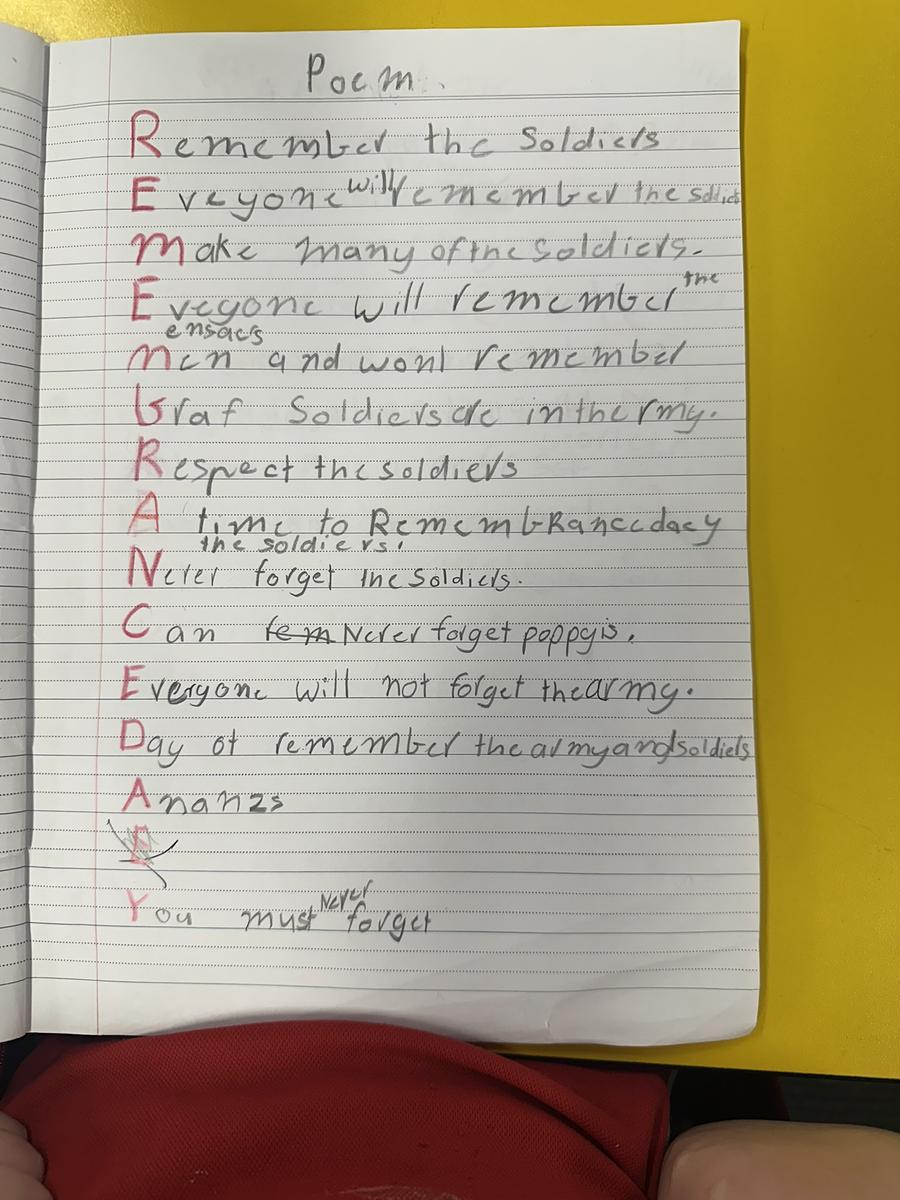 Poem.
Remember the Soldiers
Eveyone will remember the
Make many of the Soldiers.
Eveyone will remember the
ensacs
Men and wont remember
Graf Soldiers are in the rmy.
Respect the soldiers
A time to RemembRancedacy
the soldiers.
Never forget the Soldiers.
Can Never forget poppyis.
Everyone will not forget the army.
Day of remember the army and soldiers
Ananzs
You must Never forget